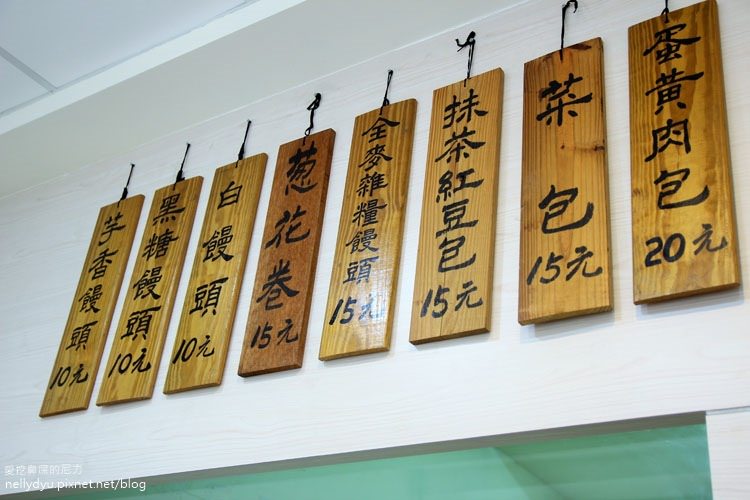 芋香饅頭
10元
黑糖饅頭
10元
白饅頭
10元
葱花卷
15元
全麥雜糧饅頭
15元
抹茶紅豆包
15元
菜包
15元
蛋黃肉包
20元
愛挖鼻屎的尼力
nellydyu.pixnet.net/blog